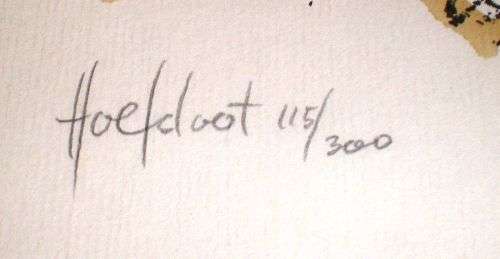 Hoefdoot 115/300